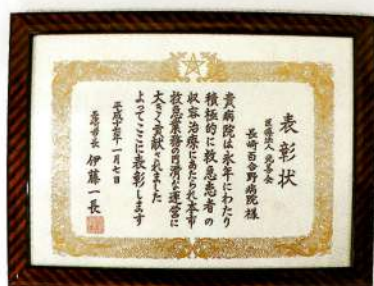 表彰状
医療法人 光善会
長崎百合野病院 様
貴病院は永年にわたり
積極的に救急患者の
収容治療にあたられ本市
救急業務の円滑な運営に
大きく貢献されました
よってここに表彰します
平成十四年一月七日
長崎市長 伊藤一長